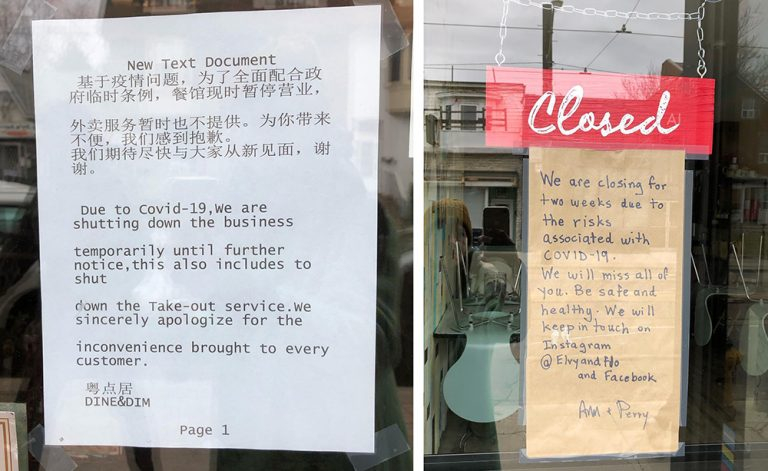 New Text Document
基于疫情问题，为了全面配合政
府临时条例，餐馆现时暂停营业，
外卖服务暂时也不提供。为你带来
不便，我们感到抱歉。
我们期待尽快与大家从新见面，谢
谢。
Due to Covid-19,We are
shutting down the business
temporarily until further
notice,this also includes to
shut
down the Take-out service.We
sincerely apologize for the
inconvenience brought to every
customer.
粤点居
DINE&DIM
Page 1
Closed
We are closing for
two weeks due to
the risks
associated with
COVID-19.
We will miss all of
you. Be safe and
healthy. We will
keep in touch on
Instagram
@ElvyandFlo
and Facebook
Ann + Perry